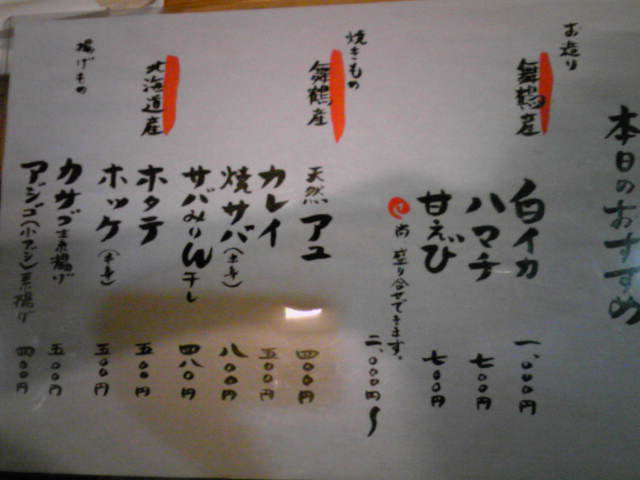 本日のおすすめ
お造り
舞鶴産
白イカ 一、〇〇〇円
ハマチ 七〇〇円
甘えび 七〇〇円
尚 盛り合せできます。 二、〇〇〇円〜
焼きもの
舞鶴産
天然アユ 四〇〇円
カレイ 五〇〇円
焼サバ(半身) 八〇〇円
サバみりん干し 四八〇円
北海道産
ホタテ 五〇〇円
ホッケ(半身) 五〇〇円
揚げもの
カサゴ素揚げ 五〇〇円
アジゴ(小アジ)素揚げ 四〇〇円